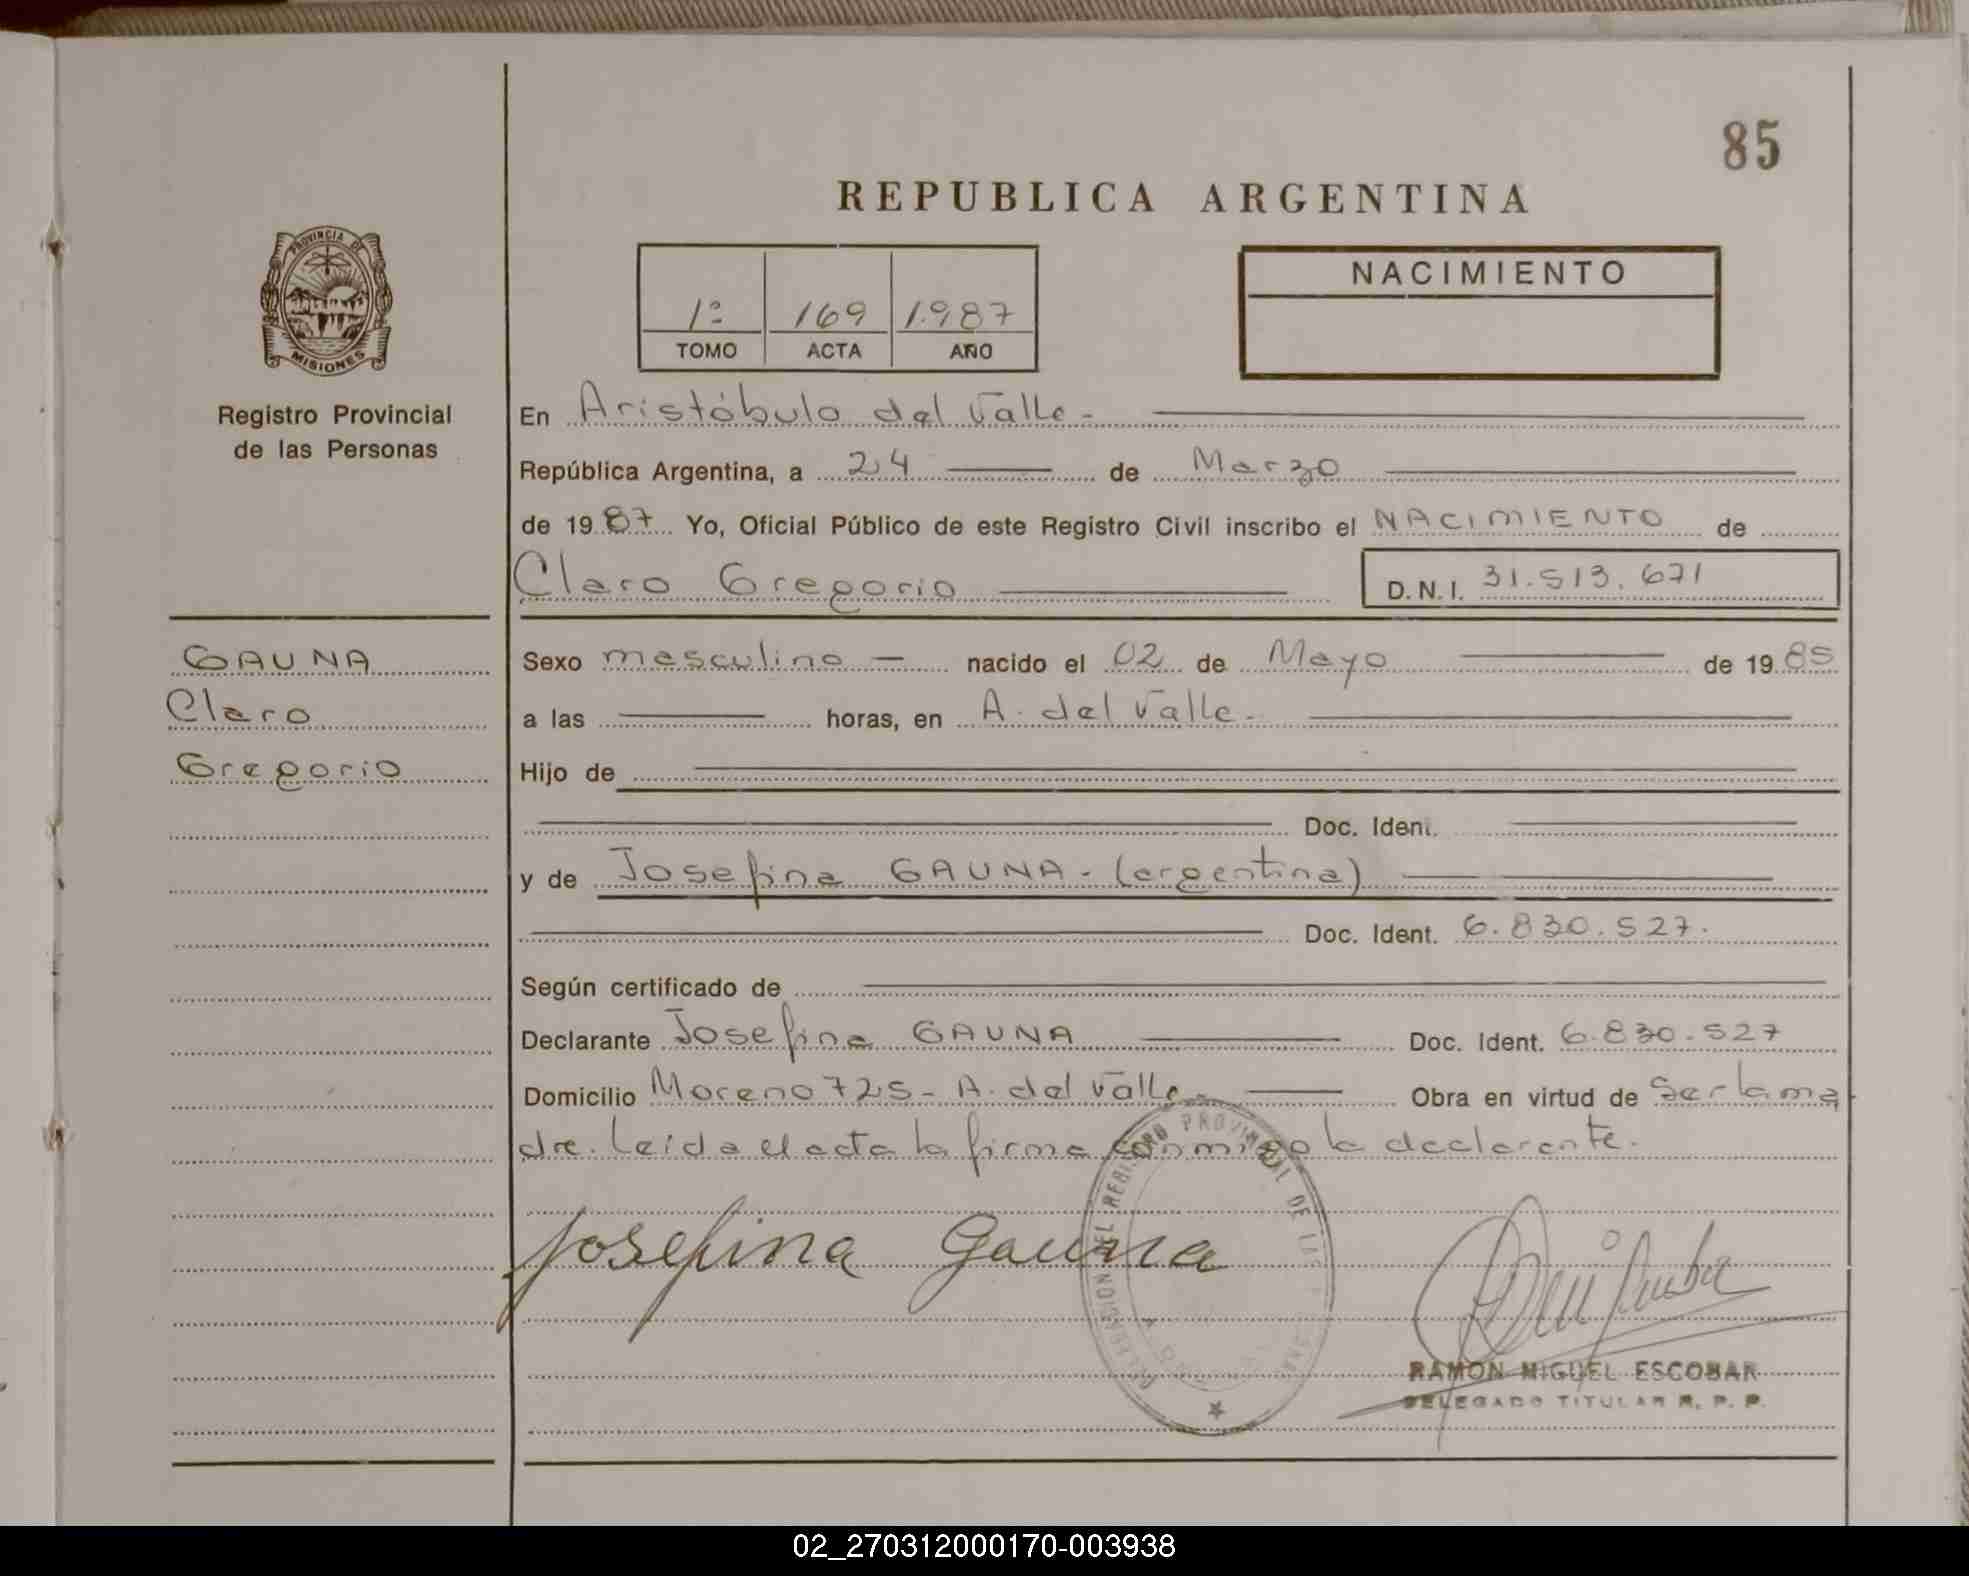 85
REPUBLICA ARGENTINA
PROVINCIA DE
MISIONES
Registro Provincial
de las Personas
1º 169 1.987
TOMO ACTA AÑO
NACIMIENTO
En Aristóbulo del Valle-
República Argentina, a 24 de Marzo
de 1987 Yo, Oficial Público de este Registro Civil inscribo el NACIMIENTO de
Claro Gregorio D.N.I. 31.513.671
GAUNA
Claro
Gregorio
Sexo masculino — nacido el 02 de Mayo de 1985
a las horas, en A. del Valle-
Hijo de
Doc. Ident.
y de Josefina GAUNA- (argentina)
Doc. Ident. 6.830.527.
Según certificado de
Declarante Josefina GAUNA Doc. Ident. 6.830.527
Domicilio Moreno 725- A. del Valle- Obra en virtud de Ser la ma
dre. Leida el acta la firma conmigo la declarante.
Josefina Gauna
DELEGACION DEL REGISTRO PROVINCIAL DE LAS
RAMON MIGUEL ESCOBAR
DELEGADO TITULAR R. P. P.
02_270312000170-003938